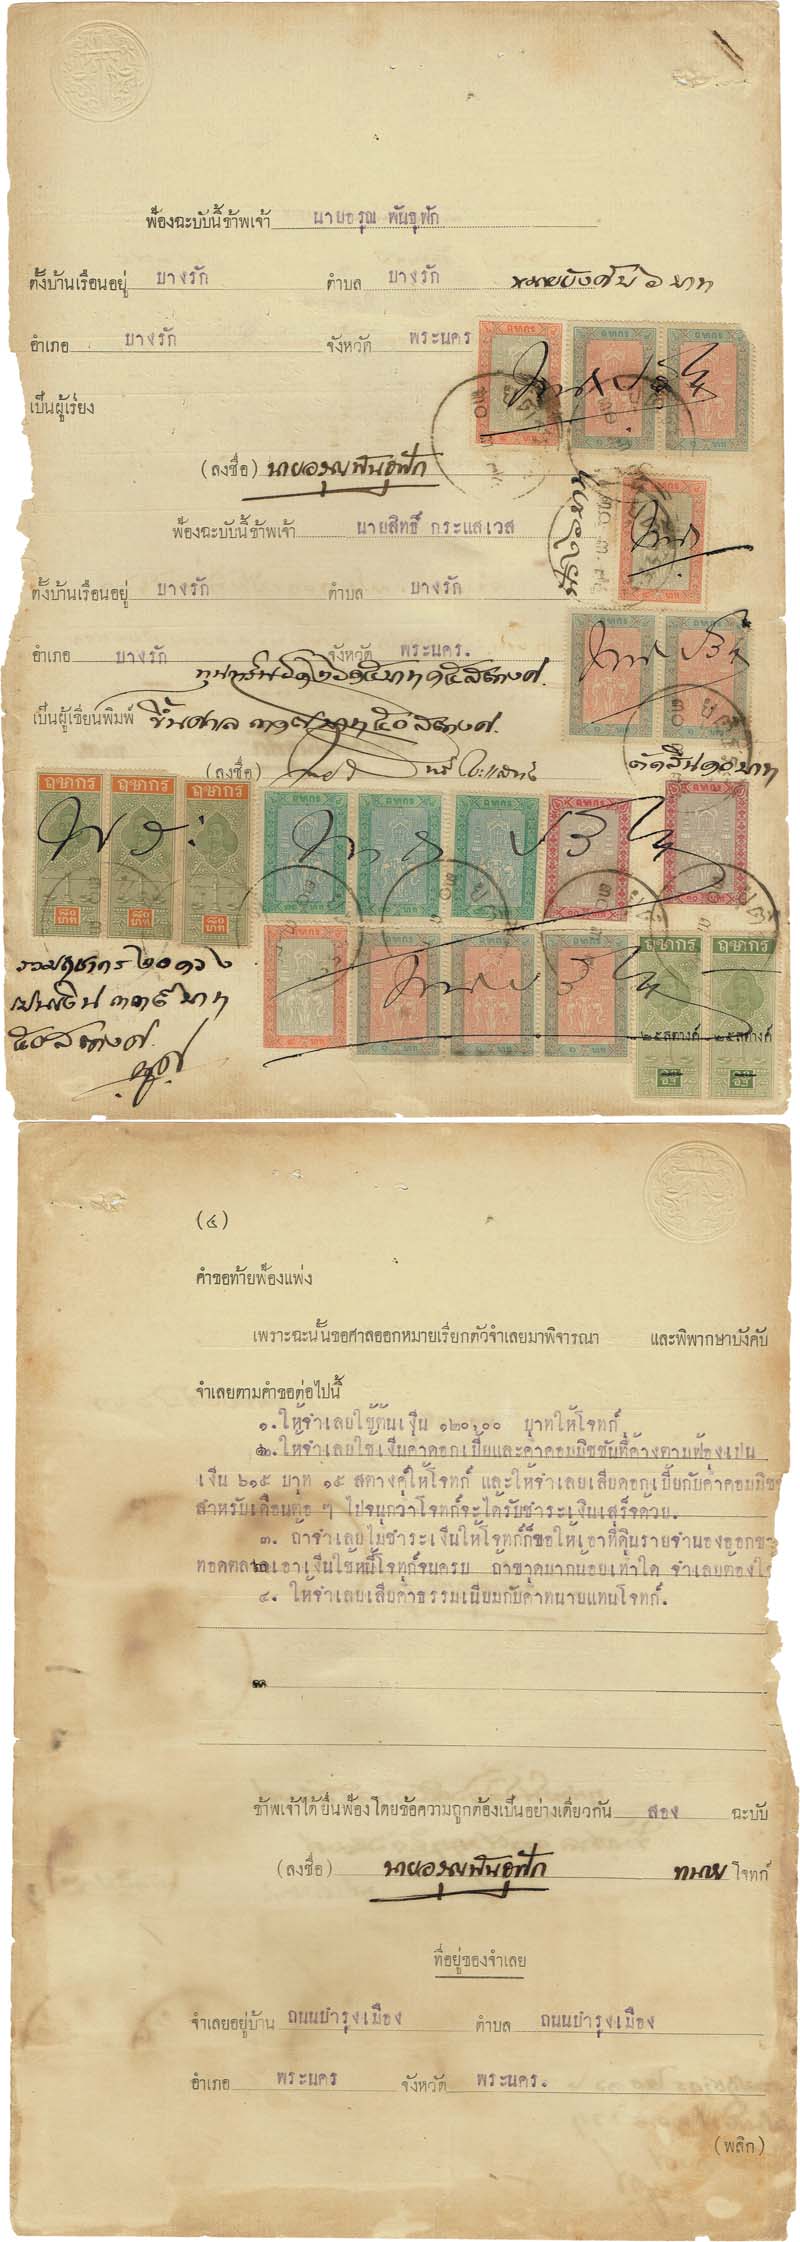 ฟ้องฉะบับนี้ข้าพเจ้า นายอรุณ พันธุฟัก
ตั้งบ้านเรือนอยู่ บางรัก ตำบล บางรัก
อำเภอ บางรัก จังหวัด พระนคร
เป็นผู้เรียง
(ลงชื่อ) นายอรุณ พันธุฟัก
ฟ้องฉะบับนี้ข้าพเจ้า นายสิทธิ์ กระแสเวส
ตั้งบ้านเรือนอยู่ บางรัก ตำบล บางรัก
อำเภอ บางรัก จังหวัด พระนคร.
เป็นผู้เขียนพิมพ์
(ลงชื่อ)
ตัดสิน ๑๐ บาท
ฤชากร ฤชากร ฤชากร
๘๐ บาท ๘๐ บาท ๘๐ บาท
ฤชากร ฤชากร
๒๕ สตางค์ ๒๕ สตางค์
รวมฤชากร ๒๐ ดวง
เปนเงิน ๓๓๙ บาท
๕๐ สตางค์
(๔)
คำขอท้ายฟ้องแพ่ง
เพราะฉะนั้นขอศาลออกหมายเรียกตัวจำเลยมาพิจารณา และพิพากษาบังคับ
จำเลยตามคำขอต่อไปนี้
๑. ให้จำเลยใช้ต้นเงิน ๑๒๐,๐๐ บาทให้โจทก์
๒. ให้จำเลยใช้เงินค่าดอกเบี้ยและค่าคอมมิชชันที่ค้างตามฟ้องเปน
เงิน ๖๑๕ บาท ๑๕ สตางค์ให้โจทก์ และให้จำเลยเสียดอกเบี้ยกับค่าคอมมิช
สำหรับเดือนต่อ ๆ ไปจนกว่าโจทก์จะได้รับชำระเงินเสร็จด้วย.
๓. ถ้าจำเลยไม่ชำระเงินให้โจทก์ก็ขอให้เอาที่ดินรายจำนองออกขา
ทอดตลาดเอาเงินใช้หนี้โจทก์จนครบ ถ้าขาดมากน้อยเท่าใด จำเลยต้องใ
๔. ให้จำเลยเสียค่าธรรมเนียมกับค่าทนายแทนโจทก์.
ข้าพเจ้าได้ยื่นฟ้องโดยข้อความถูกต้องเป็นอย่างเดียวกัน สอง ฉะบับ
(ลงชื่อ) นายอรุณ พันธุฟัก ทนาย โจทก์
ที่อยู่ของจำเลย
จำเลยอยู่บ้าน ถนนบำรุงเมือง ตำบล ถนนบำรุงเมือง
อำเภอ พระนคร จังหวัด พระนคร.
(พลิก)